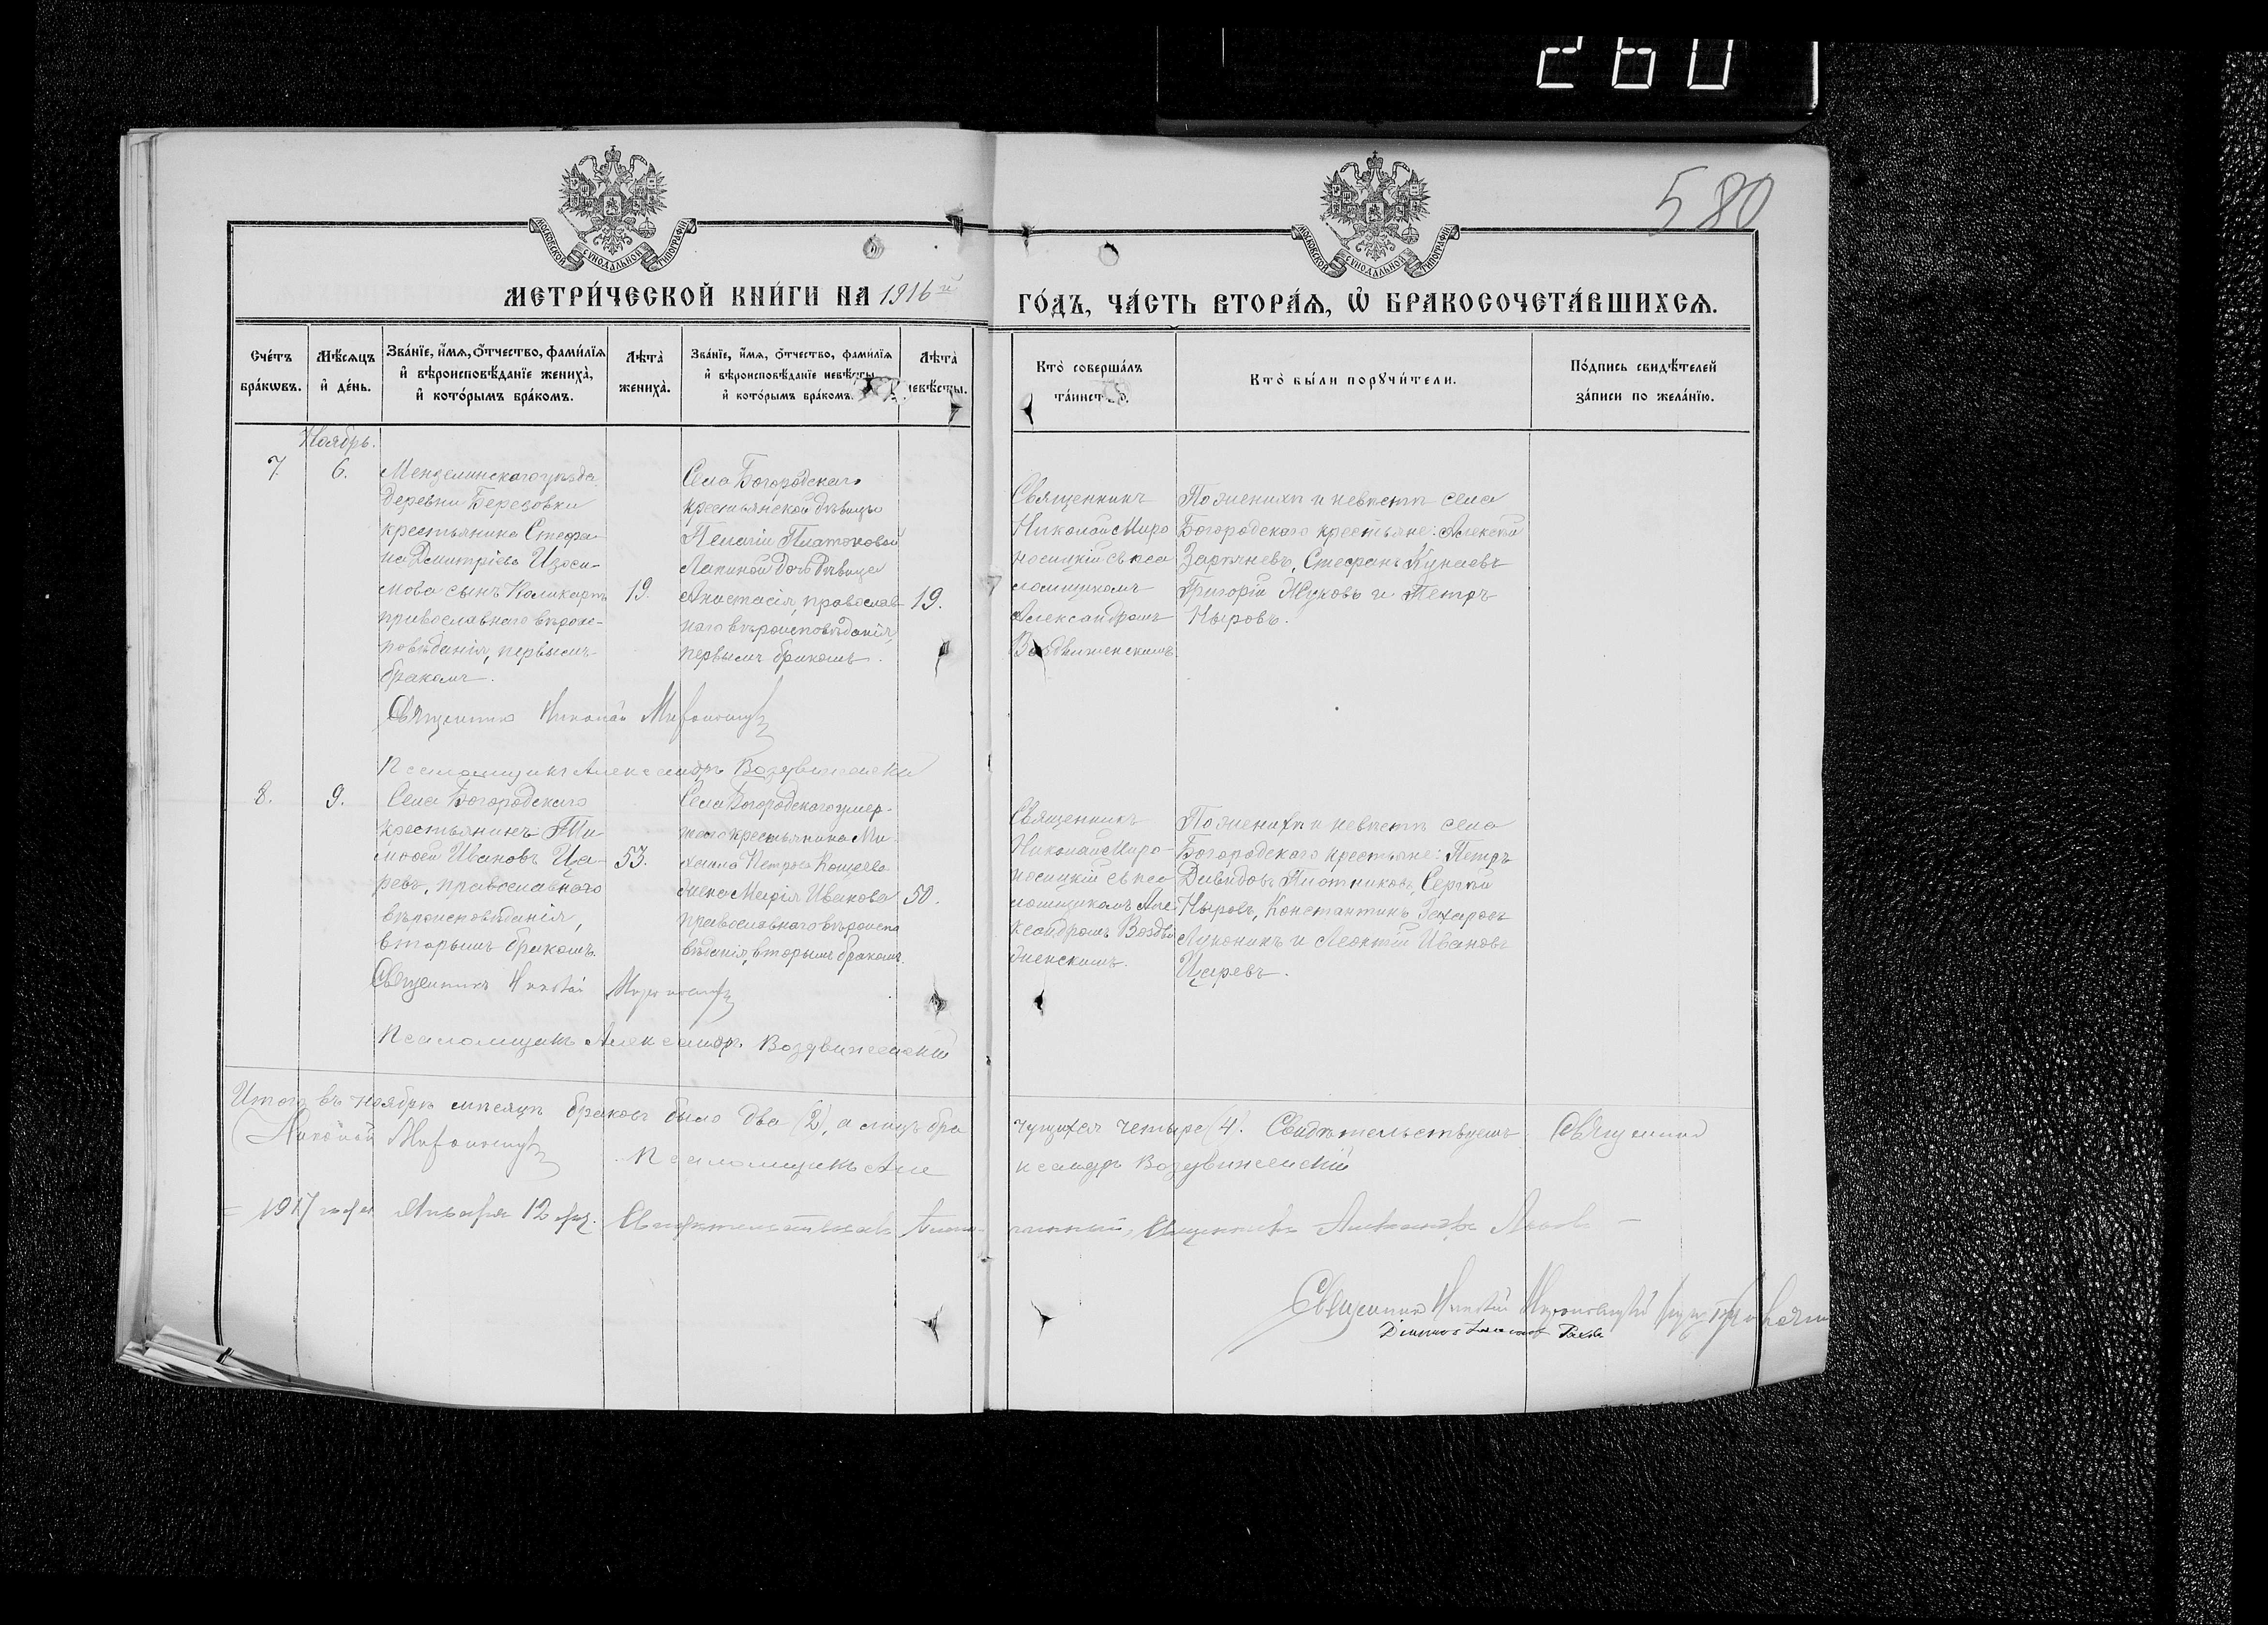 260
580
МОСКОВСКОЙ СѴНОДАЛЬНОЙ ТИПОГРАФІИ
МОСКОВСКОЙ СѴНОДАЛЬНОЙ ТИПОГРАФІИ
МЕТРИ́ЧЕСКОЙ КНИ́ГИ НА 1916й
ГО́ДЪ, ЧА́СТЬ ВТОРА́Я, Ѿ БРАКОСОЧЕТА́ВШИХСЯ.
Сче́тъ
бра́кѡвъ.
Мѣ́сяцъ
и҆ де́нь.
Зва́нїе, и҆́мя, ѻ҆́тчество, фами́лїя
и҆ вѣроисповѣ́данїе жениха̀,
и҆ кото́рымъ бра́комъ.
Лѣта̀
жениха̀.
Зва́нїе, и҆́мя, ѻ҆́тчество, фами́лїя
и҆ вѣроисповѣ́данїе невѣ́сты
и҆ кото́рымъ бра́комъ.
Лѣта̀
невѣ́сты.
Кто̀ соверша́лъ
та́инство.
Кто̀ бы́ли порꙋчи́тели.
По́дпись свидѣ́телей
за́писи по жела́нїю.
Ноябрь.
7.
6.
Мензелинскаго уѣзда
деревни Березовки
крестьянина Стефа-
на Димитріева Изоси-
мова сынъ Поликарпъ
православнаго вѣроис-
повѣданія, первымъ
бракомъ.
19.
Села Богородскаго
крестьянской дѣвицы
Пелагіи Платоновой
Лапиной дочь дѣвица
Анастасія, православ
наго вѣроисповѣданія,
первымъ бракомъ.
19.
Священникъ
Николай Миро
носицкій съ пса
ломщикомъ
Александромъ
Воздвиженскимъ
По женихѣ и невѣстѣ села
Богородскаго крестьяне: Алексѣй
Стефанъ Кунаевъ
Григорій Жуковъ и Петръ
Ныровъ.
Священникъ Николай Мироносицкій
Псаломщикъ Александръ Воздвиженскій
8.
9.
Села Богородскаго
крестьянинъ Ти
моѳей Ивановъ Ца-
ревъ, православнаго
вѣроисповѣданія,
вторымъ бракомъ.
53.
Села Богородскаго умер-
шаго крестьянина Ми
хаила Петрова Кощеева
жена Марія Иванова
православнаго вѣроиспо
вѣданія, вторымъ бракомъ.
50.
Священникъ
Николай Миро-
носицкій съ пса
ломщикомъ Але
ксандромъ Воздви
женскимъ.
По женихѣ и невѣстѣ села
Богородскаго крестьяне: Петръ
Давидовъ Плотниковъ, Сергѣй
Ныровъ, Константинъ Захаровъ
и Леонтій Ивановъ
Царевъ.
Священникъ Николай Мироносицкій
Псаломщикъ Александръ Воздвиженскій
Итого въ ноябрѣ мѣсяцѣ браковъ было два (2), а лицъ бра
чущихся четыре (4). Свидѣтельствуемъ: Священникъ
Николай Мироносицкій Псаломщикъ Але
ксандръ Воздвиженскій
1917 года Января 12 дня. Свидѣтельствовалъ благо-
чинный, Священникъ Александръ
Священникъ Николай Мироносицкій